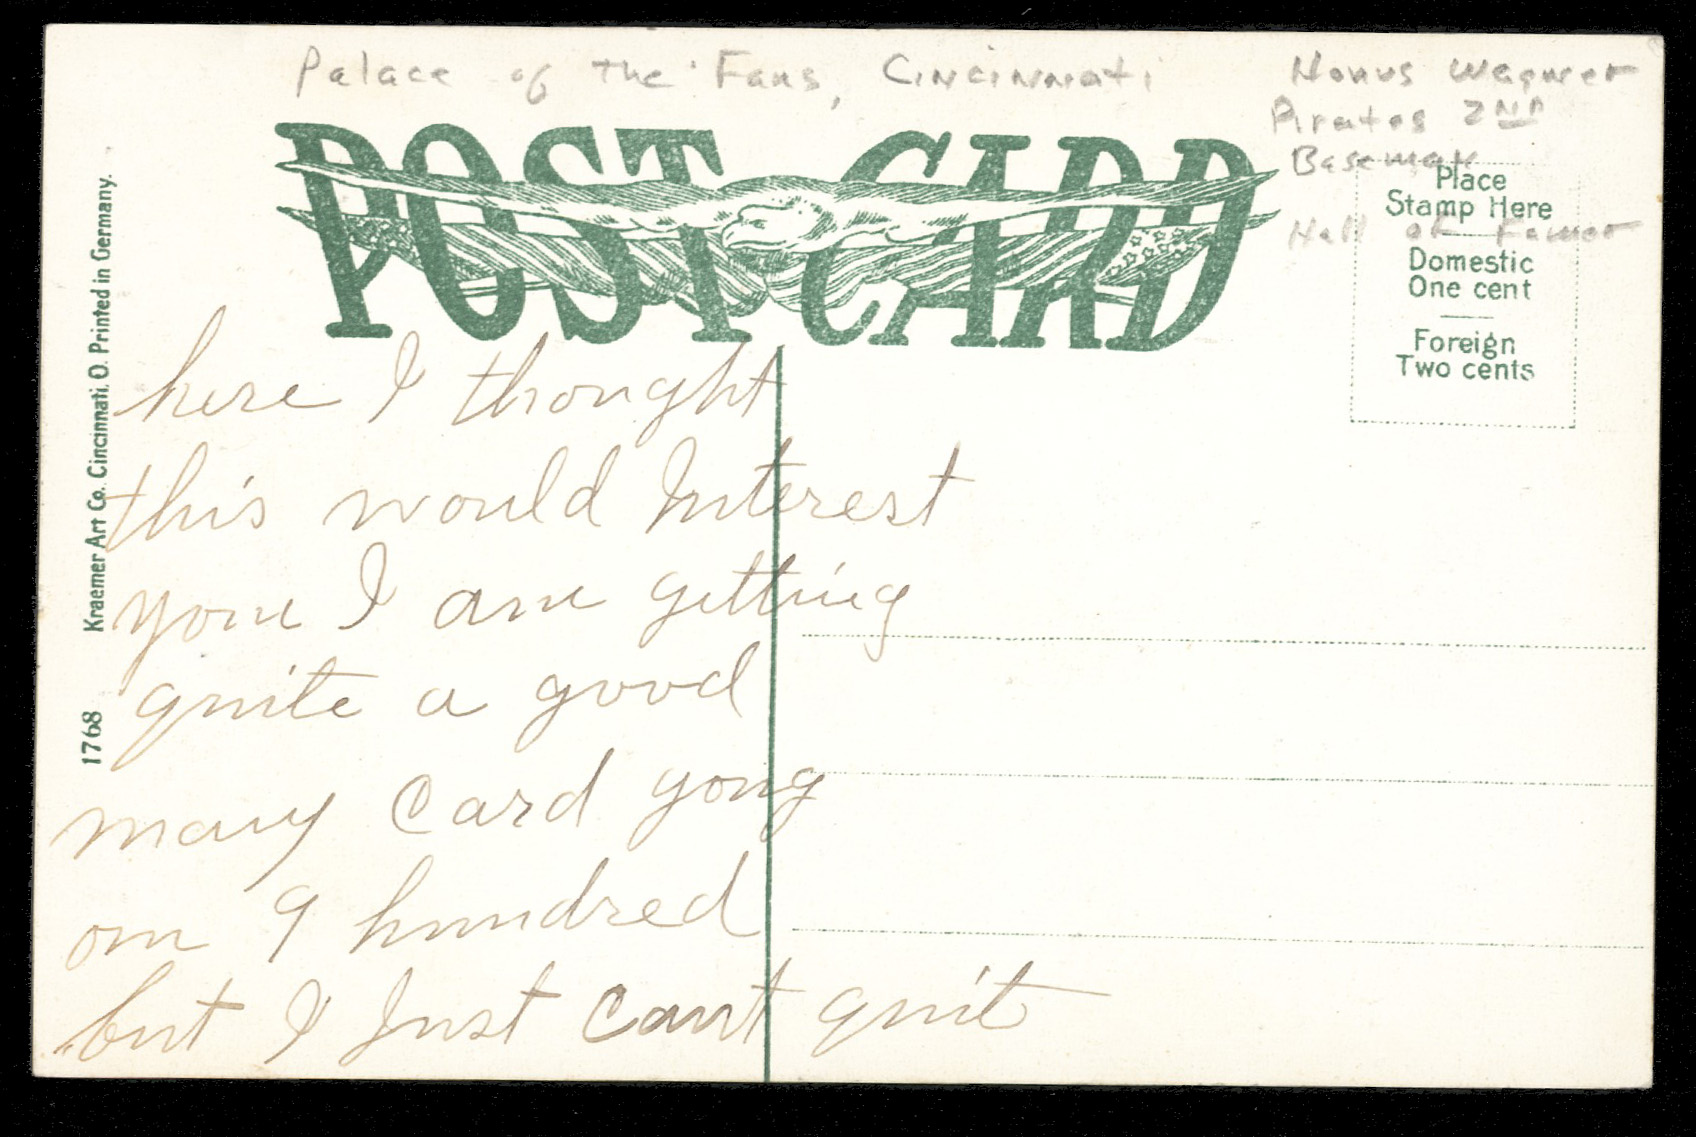 Palace of The Fans, Cincinnati
Honus Wagner
Pirates 2ND
Baseman
Hall of Famer
POST CARD
Place
Stamp Here
Domestic
One cent
Foreign
Two cents
Kraemer Art Co. Cincinnati. O. Printed in Germany.
1768
here I thought
this would Interest
you I am getting
quite a good
many Card going
on 9 hundred
but I Just Cant quit